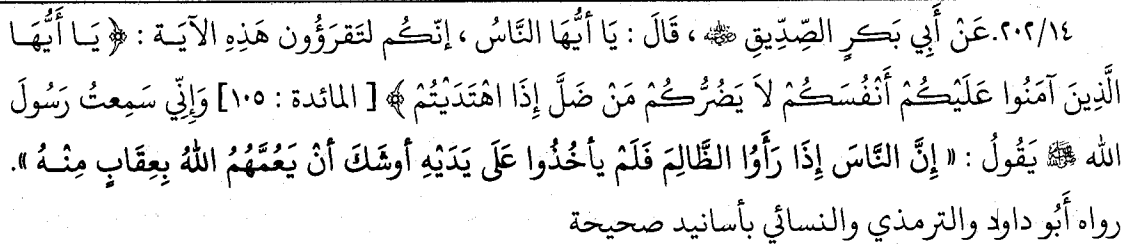 ٢٠٢/١٤.عَنْ أَبِي بَكرٍ الصِّدِّيقِ ﵁ ، قَالَ : يَا أَيُّهَا النَّاسُ ، إنّكُم لتَقرَؤُون هَذِهِ الآيَـةَ : ﴿ يَـا أَيُّهَـا
الَّذِينَ آمَنُوا عَلَيْكُمْ أَنْفُسَكُمْ لاَ يَضُرُّكُمْ مَنْ ضَلَّ إِذَا اهْتَدَيْتُمْ ﴾ [ المائدة : ١٠٥ ] وَإِنِّي سَمِعتُ رَسُولَ
الله ﷺ يَقُولُ : « إِنَّ النَّاسَ إِذَا رَأَوُا الظَّالِمَ فَلَمْ يأخُذُوا عَلَى يَدَيْهِ أوشَكَ أنْ يَعُمَّهُمُ اللهُ بِعِقَابٍ مِنْـهُ ».
رواه أَبُو داود والترمذي والنسائي بأسانيد صحيحة